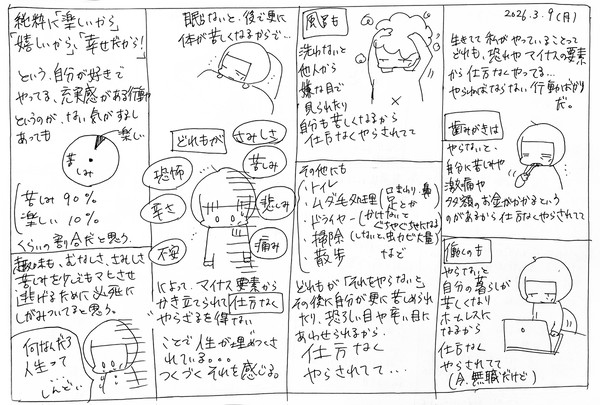 2026.3.9(月)
生きてて私がやっていることって
どれも、恐れやマイナスの要素
から仕方なくやってる…
やらねばならない行動ばかり
だ。
歯みがきは
やらないと、
自分に苦しみや
激痛や
多額のお金がかかるという
のがあるから仕方なくやらされてて
働くのも
やらないと
自分の暮らしが
苦しくなり
ホームレスに
なるから
仕方なく
やらされてて
(今、無職だけど)
風呂も
洗わないと
他人から
嫌な目で
見られたり
自分も苦しくなるから
仕方なくやらされてて
その他にも
・トイレ
・ムダ毛処理(口まわり、鼻
足とか
・ドライヤー(かけないと
ぐちゃぐちゃになる
・掃除(しないと、虫カビ大量)
・散歩 など
どれもが「それをやらないと」
その後に自分が更に苦しめられ
たり、恐ろしい目や辛い目に
あわせられるから、
仕方なく
やらされてて…
眠らないと、後で更に
体が苦しくなるからで…
どれもが
さみしさ
恐怖
苦しみ
辛さ
悲しみ
不安
痛み
によって、マイナス要素から
かき立てられて仕方なく
やらざるを得ない
ことで人生が埋めつくさ
れている。。。
つくづくそれを感じる。
純粋に「楽しいから」
「嬉しいから」「幸せだから!」
という、自分が好きで
やってる、充実感がある行動
というのが、ない気がするし
あっても
楽しい
苦しみ
苦しみ 90%
楽しい 10%
くらいの割合だと思う.
趣味も、むなしさ、さみしさ
苦しみを少しでもマヒさせ
逃げるために必死に
しがみついてると思う。
何なんだろ
人生って
…
しんど…